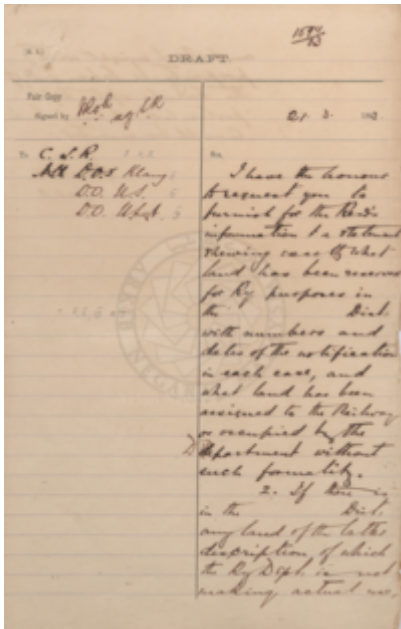 1584/03
DRAFT.
Fair Copy
Signed by
21. 3. 190
To C. S. R.
Sir,
All D.O.s Klang
I have the honour
D.O. U.S.
to request you to
furnish for the
information & a statement
shewing
what
land has been reserved
for Ry purposes in
the Dist.
with numbers and
dates of the notification
in each case, and
what land has been
assigned to the Railway
or occupied by the
Department without
such formality.
2. If there is
in the Dist.
any land of the latter
description, of which
the Ry Dept. is not
making actual use,